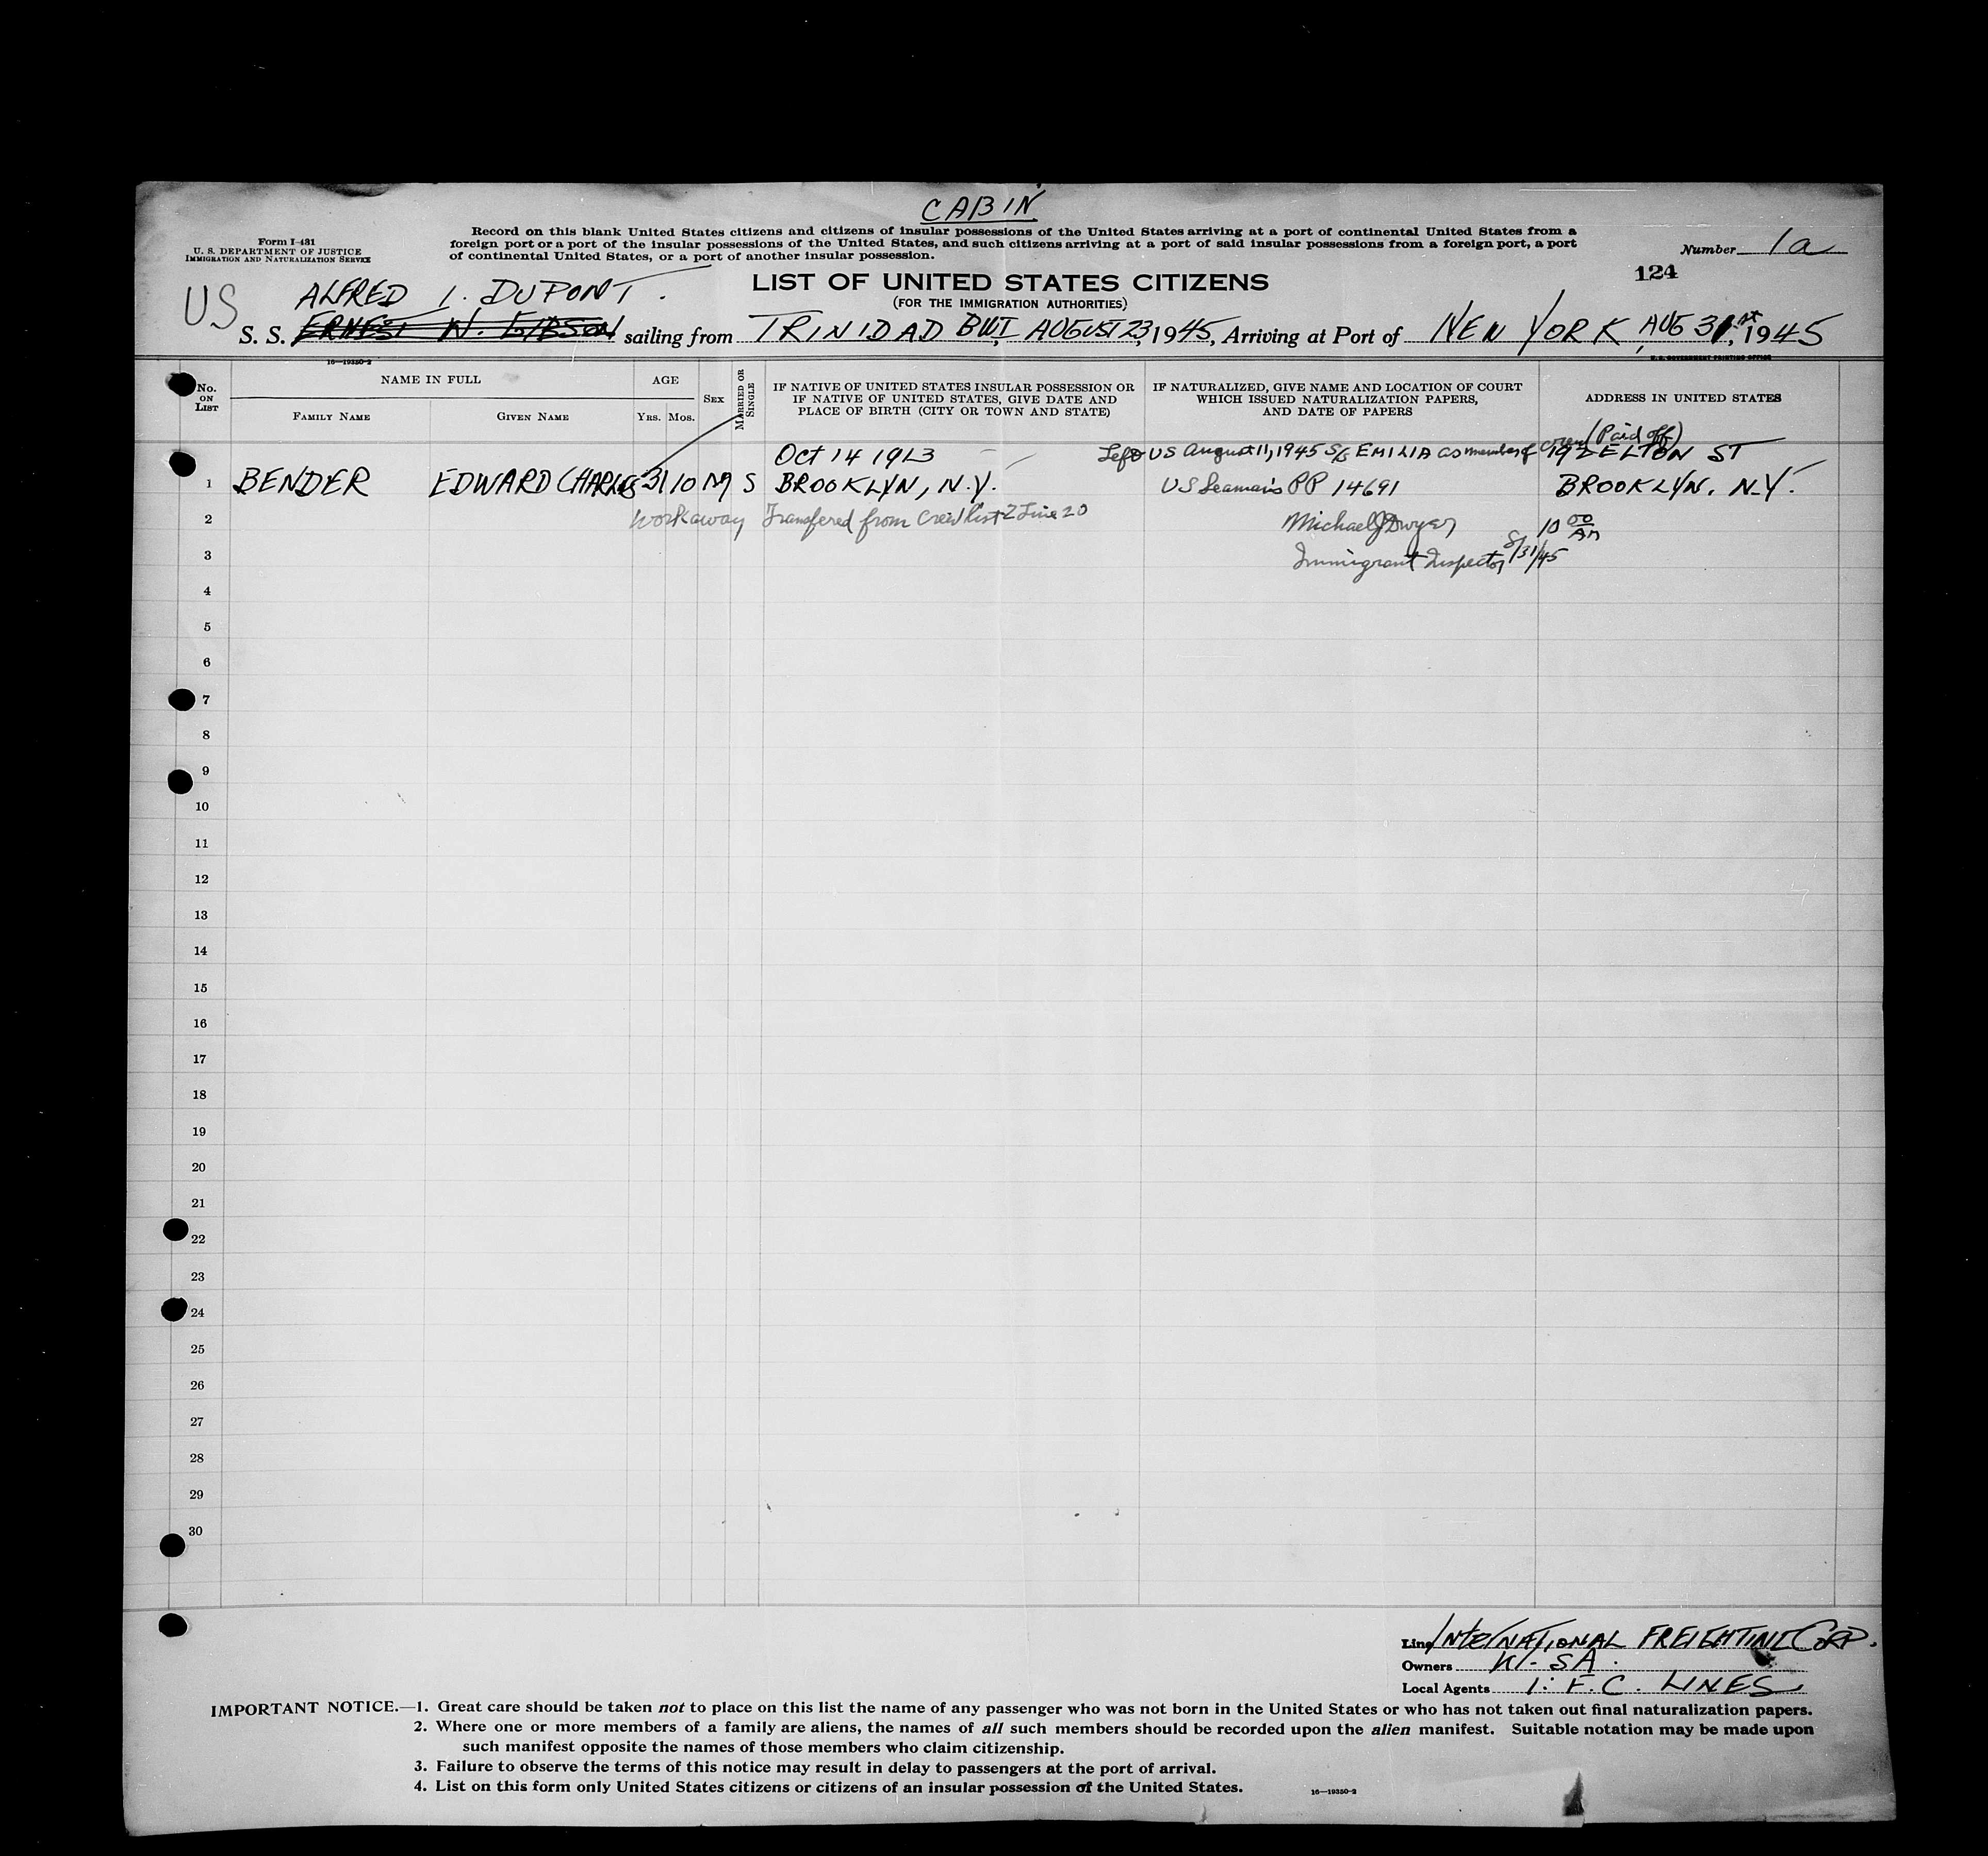 CABIN
Form I-431
U. S. DEPARTMENT OF JUSTICE
IMMIGRATION AND NATURALIZATION SERVICE
Record on this blank United States citizens and citizens of insular possessions of the United States arriving at a port of continental United States from a
foreign port or a port of the insular possessions of the United States, and such citizens arriving at a port of said insular possessions from a foreign port, a port
of continental United States, or a port of another insular possession.
Number 1a
124
LIST OF UNITED STATES CITIZENS
(FOR THE IMMIGRATION AUTHORITIES)
US
ALFRED I. DUPONT.
S. S. ERNEST W. GIBSON sailing from TRINIDAD BWI, AUGUST 23, 1945, Arriving at Port of NEW YORK, AUG 31st, 1945
16—19350-2
U. S. GOVERNMENT PRINTING OFFICE
No. ON LIST
NAME IN FULL
FAMILY NAME
GIVEN NAME
AGE
YRS.
MOS.
SEX
MARRIED OR SINGLE
IF NATIVE OF UNITED STATES INSULAR POSSESSION OR
IF NATIVE OF UNITED STATES, GIVE DATE AND
PLACE OF BIRTH (CITY OR TOWN AND STATE)
IF NATURALIZED, GIVE NAME AND LOCATION OF COURT
WHICH ISSUED NATURALIZATION PAPERS,
AND DATE OF PAPERS
ADDRESS IN UNITED STATES
Oct 14 1913
Left US August 11, 1945 S/S EMILIA as member of crew (Paid off)
192 ELTON ST
1 BENDER EDWARD CHARLES 31 10 M S BROOKLYN, N.Y. US Seaman's PP 14691 BROOKLYN, N.Y.
2 Workaway Transfered from Crew list 2 Line 20 Michael J Dwyer 10 00 AM
3 Immigrant Inspector 8/31/45
4
5
6
7
8
9
10
11
12
13
14
15
16
17
18
19
20
21
22
23
24
25
26
27
28
29
30
Line InterNATIONAL FREIGHTING CORP.
Owners W. S A.
Local Agents I. F. C. LINES
IMPORTANT NOTICE.—1. Great care should be taken not to place on this list the name of any passenger who was not born in the United States or who has not taken out final naturalization papers.
2. Where one or more members of a family are aliens, the names of all such members should be recorded upon the alien manifest. Suitable notation may be made upon
such manifest opposite the names of those members who claim citizenship.
3. Failure to observe the terms of this notice may result in delay to passengers at the port of arrival.
4. List on this form only United States citizens or citizens of an insular possession of the United States.
16—19350-2